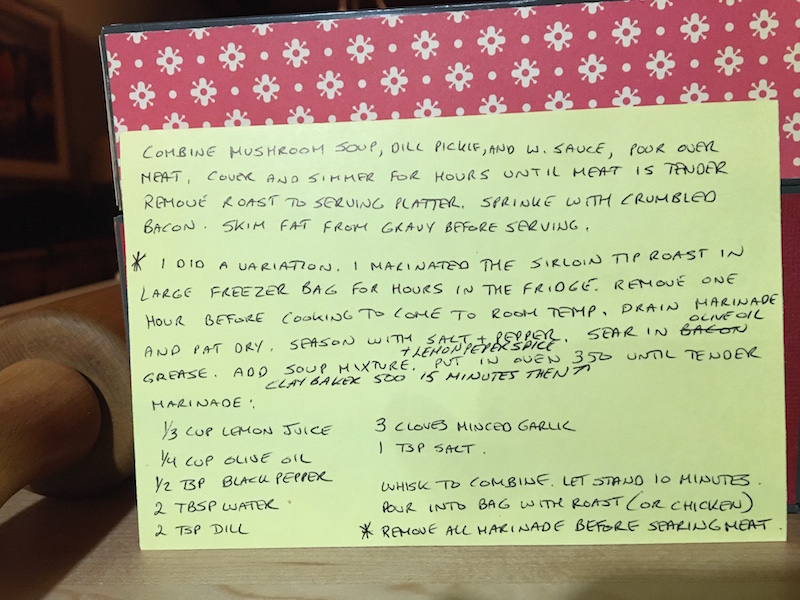 COMBINE MUSHROOM SOUP, DILL PICKLE, AND W. SAUCE, POUR OVER
MEAT. COVER AND SIMMER FOR HOURS UNTIL MEAT IS TENDER
REMOVE ROAST TO SERVING PLATTER. SPRINKE WITH CRUMBLED
BACON. SKIM FAT FROM GRAVY BEFORE SERVING.
* I DID A VARIATION. I MARINATED THE SIRLOIN TIP ROAST IN
LARGE FREEZER BAG FOR HOURS IN THE FRIDGE. REMOVE ONE
HOUR BEFORE COOKING TO COME TO ROOM TEMP. DRAIN MARINADE
OLIVE OIL
AND PAT DRY. SEASON WITH SALT + PEPPER. SEAR IN BACON
+ LEMON PEPER SPICE
GREASE. ADD SOUP MIXTURE. PUT IN OVEN 350 UNTIL TENDER
CLAY BAKER 500 15 MINUTES THEN ↗
MARINADE:
1/3 CUP LEMON JUICE
1/4 CUP OLIVE OIL
1/2 TSP BLACK PEPPER
2 TBSP WATER
2 TSP DILL
3 CLOVES MINCED GARLIC
1 TSP SALT.
WHISK TO COMBINE. LET STAND 10 MINUTES.
POUR INTO BAG WITH ROAST (OR CHICKEN)
* REMOVE ALL MARINADE BEFORE SEARING MEAT.